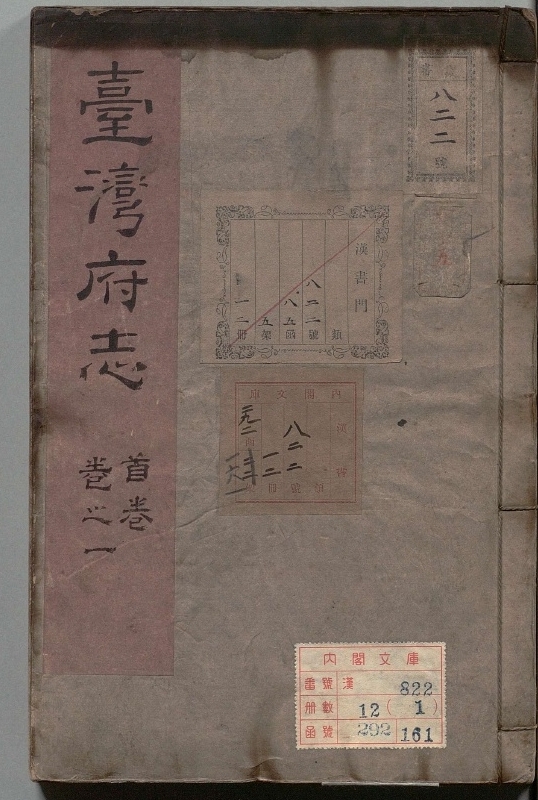 臺灣府志
首卷
卷之一
八二二
號
漢書門
類
八二二號
八五函
五架
一二冊
內閣文庫
漢書
八二二
一二
號冊
內閣文庫
番號 漢 822
冊數 12 ( 1 )
函號 292 161